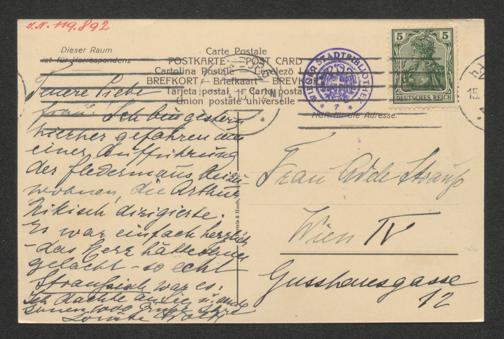 I.N. 119.892
Dieser Raum
ist für Korrespondenz
Carte Postale
POSTKARTE — POST CARD
Cartolina Postale
BREFKORT — Briefkaart — BREVKORT
Tarjeta postal
Union postale universelle
WIENER STADTBIBLIOTHEK
5 5
DEUTSCHES REICH
15
Adresse.
Teure liebe
Frau! Ich bin gestern
hierher gefahren um
einer Aufführung
der Fledermaus beizu
wohnen, die Arthur
Nikisch dirigierte.
Es war einfach herrlich
- das Herz hätte Ihnen
gelacht - so echt
Straußisch war es.
Ich dachte an Sie
Frau Adele Strauß
Wien IV
Gusshausgasse
12